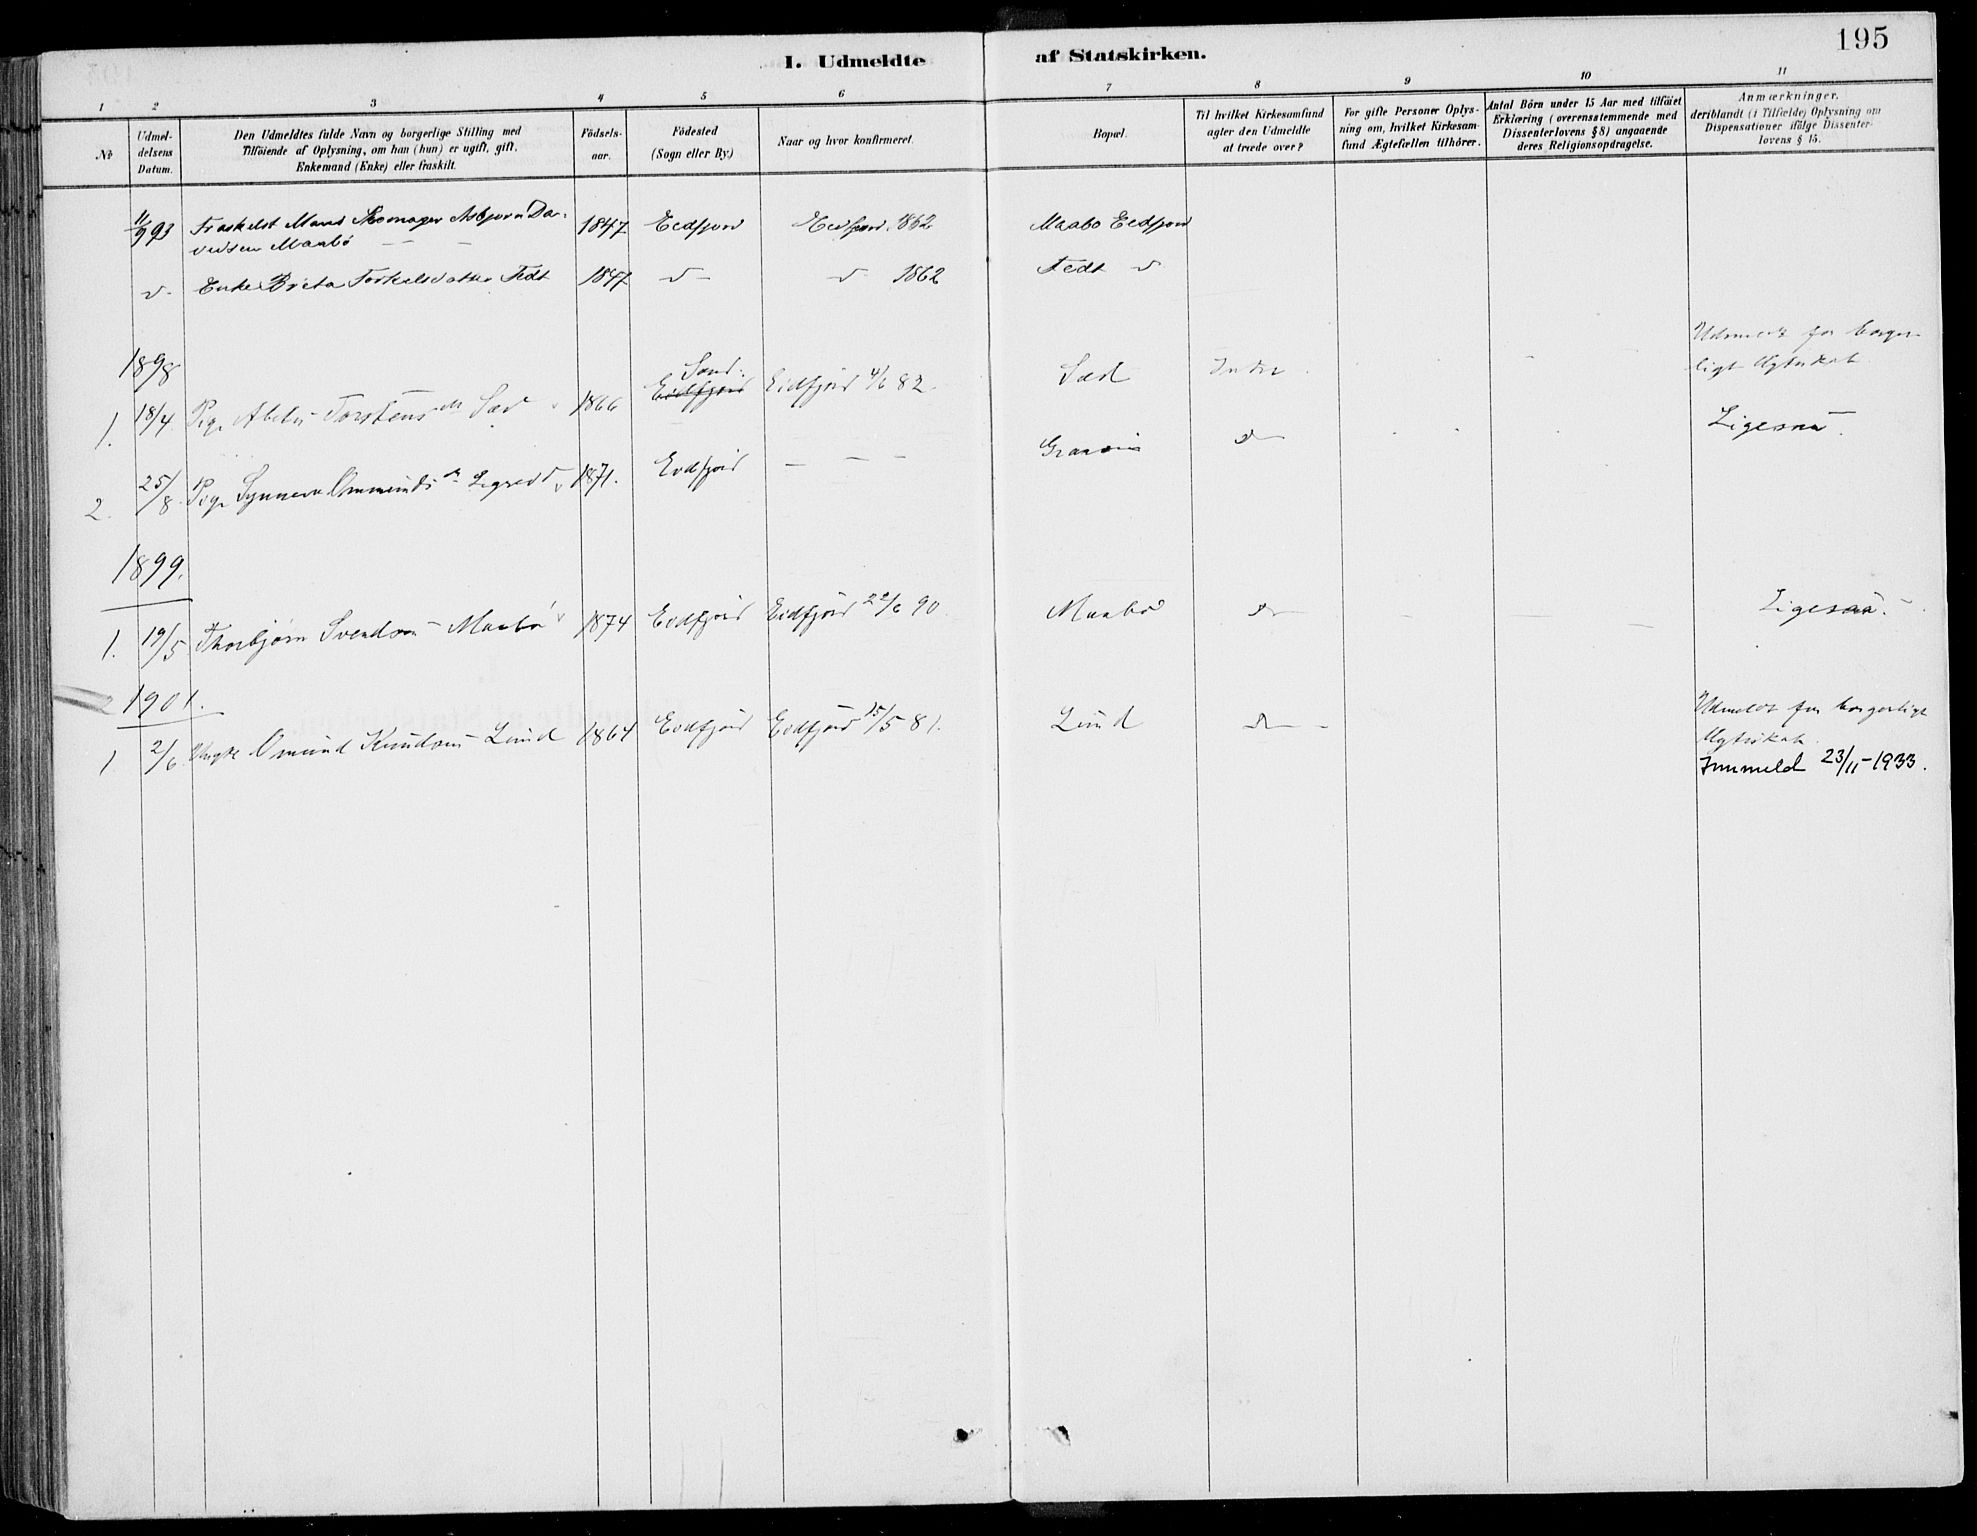 195
I. Udmeldte af Statskirken.
1 2 3 4 5 6 7 8 9 10 11
No
Udmel-
delsens
Datum.
Den Udmeldtes fulde Navn og borgerlige Stilling med
Tilföiende af Oplysning, om han (hun) er ugift, gift,
Enkemand (Enke) eller fraskilt.
Födsels-
aar.
Födested
(Sogn eller By.)
Naar og hvor konfirmeret.
Bopæl.
Til hvilket Kirkesamfund
agter den Udmeldte
at træde over?
For gifte Personer Oplys-
ning om, hvilket Kirkesam-
fund Ægtefællen tilhörer.
Antal Börn under 15 Aar med tilföiet
Erklæring (overensstemmende med
Dissenterlovens § 8) angaaende
deres Religionsopdragelse.
Anmærkninger,
deriblandt (i Tilfælde) Oplysning om
Dispensationer ifölge Dissenter-
lovens § 15.
11/9 93 Fraskilst Mand Skomager Asbjorn Da- 1847 Eidfjord Eidfjord 1862 Maabo Eidfjord
vidsen Maabö
Enke Brita Torkelsdatter Tedt 1847 1862 Tedt
1898
Udmeldt for borger-
ligt Ægteskab
1. 18/4 Pige Torstens 1866 Eidfjord Eidfjord 4/6 82
2. 25/8 Pige Synneva Ommunds 1871. Eidfjord — — — Ligesaa.
1899.
1. 19/5 Thorbjørn Svendsen Maabø 1874 Eidfjord Eidfjord 22/6 90 Maabø Ligesaa.
1901.
1. 2/6 Osmund Knudsen Lund 1864 Eidfjord Eidfjord 15/5 81. Lund Udmeldt for borgerligt
Ægteskab.
Innmeld 23/11-1933.